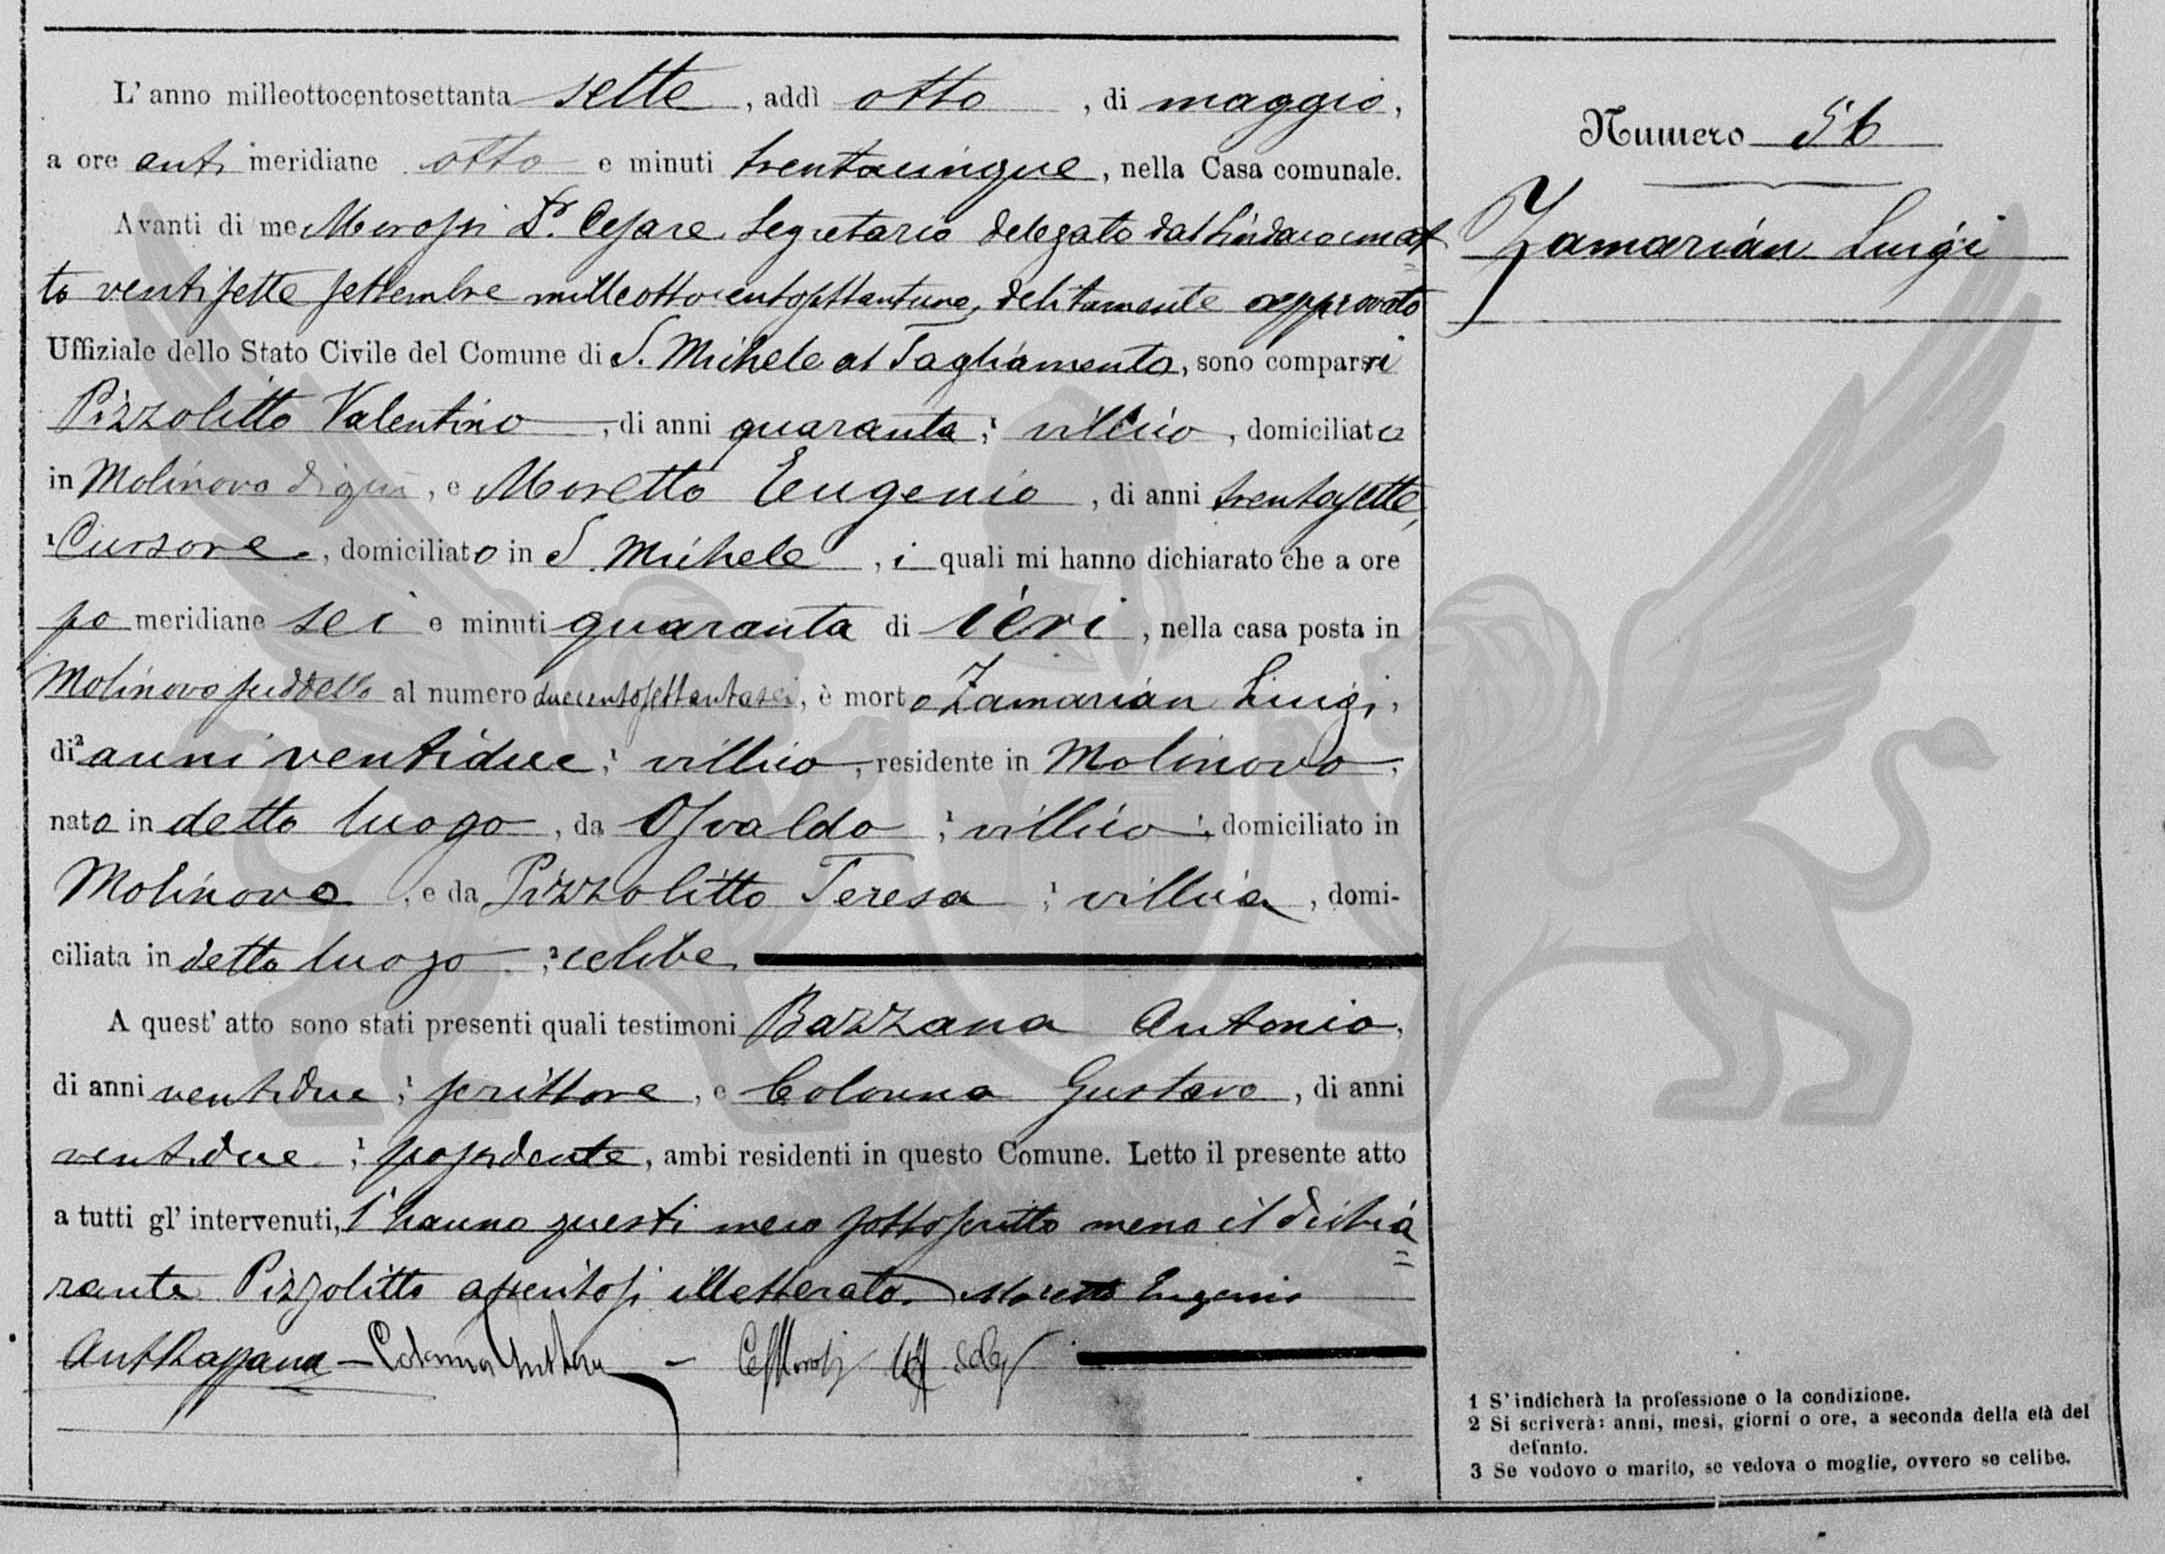 L' anno milleottocentosettanta sette, addì otto, di maggio,
a ore anti meridiane otto e minuti trentacinque, nella Casa comunale.
Avanti di me Morossi Dr. Cesare Segretario delegato dal Sindaco con at=
to ventisette settembre milleottocentosettantuno, debitamente approvato
Uffiziale dello Stato Civile del Comune di S. Michele al Tagliamento, sono comparsi
Pizzolitto Valentino, di anni quaranta, villico, domiciliato
in Molinovo di qui, e Moretto Eugenio, di anni trentasette,
Cursore, domiciliato in S. Michele, i quali mi hanno dichiarato che a ore
po meridiane sei e minuti quaranta di ieri, nella casa posta in
Molinovo suddetto al numero duecentosettantasei, è morto Zamarian Luigi,
di anni ventidue, villico, residente in Molinovo,
nato in detto luogo, da Osvaldo, villico, domiciliato in
Molinovo, e da Pizzolitto Teresa, villica, domi-
ciliata in detto luogo, celibe
A quest' atto sono stati presenti quali testimoni Bazzana Antonio,
di anni ventidue, scrittore, e Colonna Gustavo, di anni
ventidue, possidente, ambi residenti in questo Comune. Letto il presente atto
a tutti gl' intervenuti, l'hanno questi meco sottoscritto meno il dichia=
rante Pizzolitto asseritosi illetterato. Moretto Eugenio
Ant Bazzana – Colonna Gustavo –
Numero 56
Zamarian Luigi
1 S' indicherà la professione o la condizione.
2 Si scriverà: anni, mesi, giorni o ore, a seconda della età del
defunto.
3 Se vedovo o marito, se vedova o moglie, ovvero se celibe.